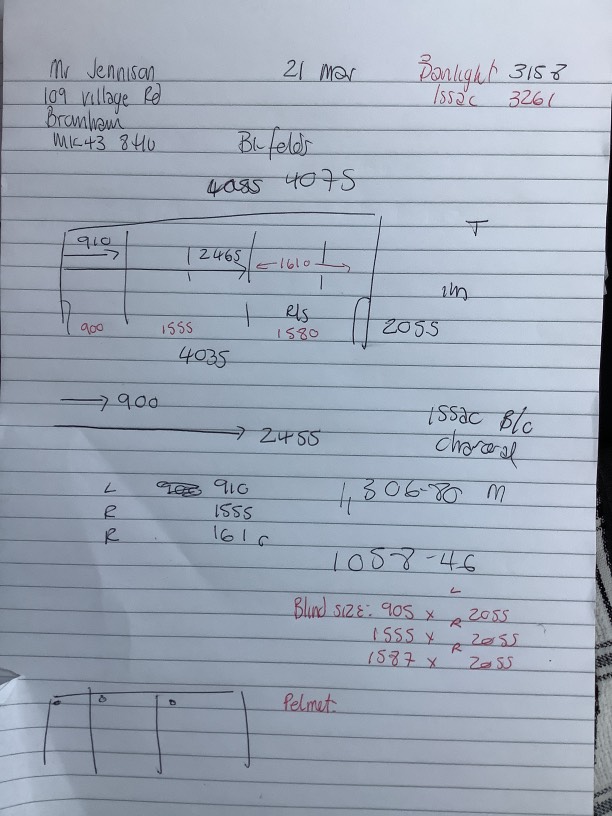 Mr Jennison 21 Mar Banlight 3158
109 Village Rd Issac 3261
Bramham
MK43 8HU Bi-folds
4085 4075
910 T
2465 1610
1m
R/S
900 1555 1580 2055
4035
900 Issac B/c
2455 charcoal
L 910 1,306-80 M
R 1555
R 1610
1058-46
L
Blind size: 905 x 2055
1555 x R 2055
1587 x R 2055
Pelmet: